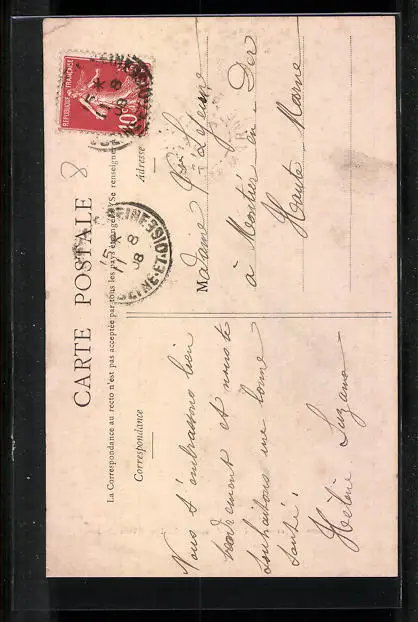 CARTE POSTALE
La Correspondance au recto n'est pas acceptée par tous les pays étrangers (Se renseigner
Correspondance
Adresse
REPUBLIQUE FRANÇAISE
10
8
15
8
08
SEINE-ET-OISE
Nous t'embrassons bien
tendrement et nous te
souhaitons une bonne
santé.
Hélène Suzanne
Madame Lejeune
à Montier en Der
Haute Marne